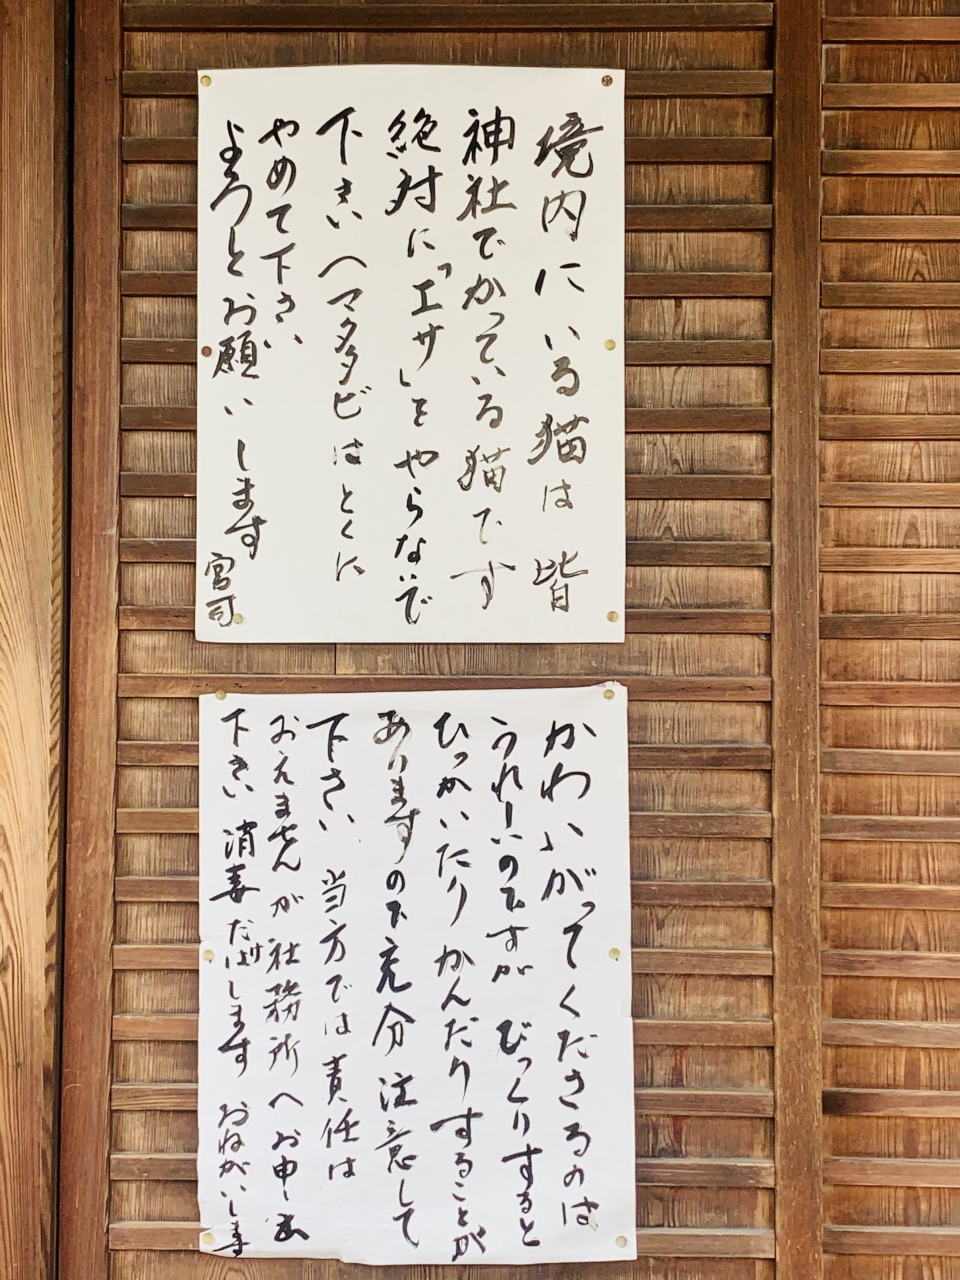 境内にいる猫は皆
神社でかっている猫です
絶対に「エサ」をやらないで
下さいへマタタビはとくに
やめて下さい
よろとお願いします
宮司
かわいがってくださるのは
うれしいのですが びっくりすると
ひっかいたりかんだりすることが
ありますので充分注意して
下さい 当方では責任は
おえませんが社務所へお申し出
下さい 消毒だけはします おねがいします